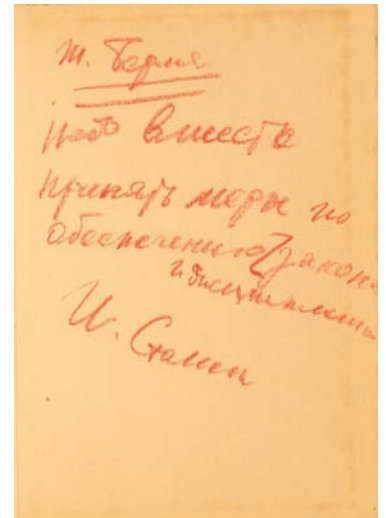 т. Берия
Надо вместе
принять меры по
обеспечению закона
и дисциплины
И. Сталин